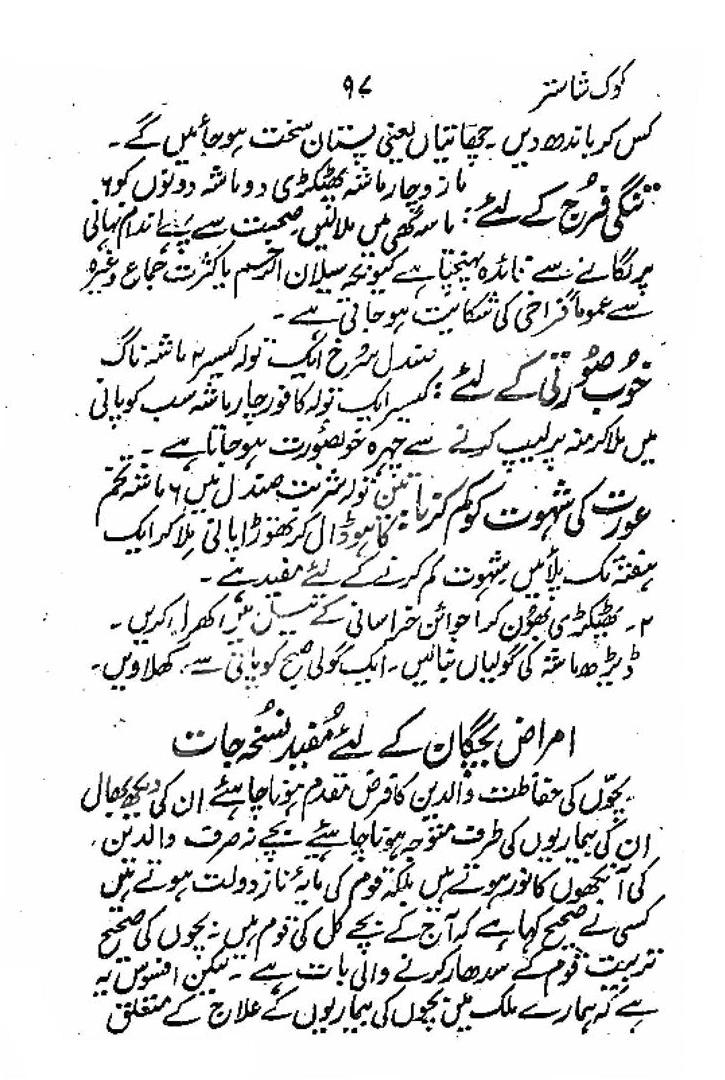 کوک شاستر ۹۷
کس کر باندھ دیں ۔ چھاتیاں یعنی پستان سخت ہو جائیں گے ۔
تنگی فرج کے لئے : مازو چار ماشہ پھٹکڑی دو ماشہ دونوں کو ۶
ماسہ گھی میں ملالیں صحبت سے پہلے اندام نہانی
پر لگانے سے فائدہ پہنچتا ہے کیونکہ سیلان الرحم یا کثرت جماع وغیرہ
سے عموماً فراخی کی شکایت ہو جاتی ہے ۔
خوب صورتی کے لئے : صندل سرخ ایک تولہ کیسر ۲ ماشہ ناگ
کیسر ایک تولہ کافور چار ماشہ سب کو پانی
میں ملا کر منہ پر لیپ کرنے سے چہرہ خوبصورت ہو جاتا ہے ۔
عورت کی شہوت کو کم کرنا : تین تولہ شربت صندل میں ۶ ماشہ تخم
کاہو ڈال کر تھوڑا پانی ملا کر ایک
ہفتہ تک پلائیں شہوت کم کرنے کے لئے مفید ہے ۔
۲ ۔ پھٹکڑی بھون کر اجوائن خراسانی کے میں کھرل کریں ۔
ڈیڑھ ماشہ کی گولیاں بنائیں ۔ ایک گولی صبح کو پانی سے کھلاویں ۔
امراض بچگان کے لئے مفید نسخہ جات
بچّوں کی حفاظت والدین کا فرض مقدم ہونا چاہئے ان کی دیکھ بھال
ان کی بیماریوں کی طرف متوجہ ہونا چاہئیے بچے نہ صرف والدین
کی آنکھوں کا نور ہوتے ہیں بلکہ قوم کی مایۂ ناز دولت ہوتے ہیں
کسی نے صحیح کہا ہے کہ آج کے بچے کل کی قوم ہیں ۔ بچوں کی صحیح
تربیت قوم کے سدھار کرنے والی بات ہے ۔ لیکن افسوس یہ
ہے کہ ہمارے ملک میں بچوں کی بیماریوں کے علاج کے متعلق